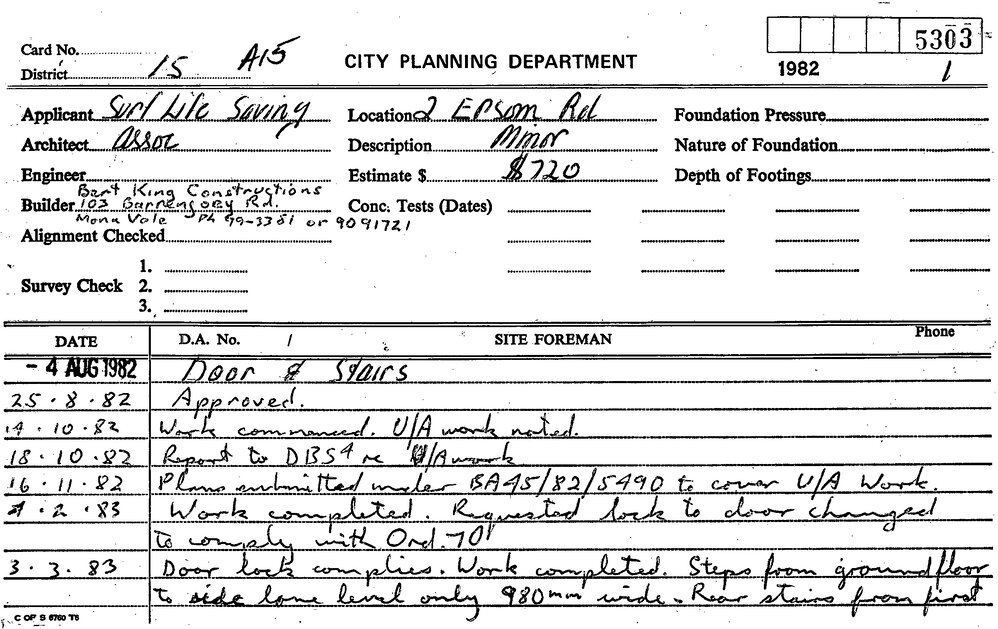 5303
Card No.
District 15 A15
CITY PLANNING DEPARTMENT
1982 1
Applicant Surf Life Saving
Location 2 Epsom Rd
Foundation Pressure
Architect Assoc
Description Minor
Nature of Foundation
Engineer
Estimate $ $720
Depth of Footings
Bart King Constructions
Builder 103 Barrenjoey Rd.
Conc. Tests (Dates)
Mona Vale Ph 99-3381 or 9091721
Alignment Checked
1.
Survey Check 2.
3.
DATE D.A. No. / SITE FOREMAN Phone
- 4 AUG 1982 Door & Stairs
25.8.82 Approved.
14.10.82 Work commenced. U/A work noted.
18.10.82 Report to DBS4 re U/A work
16.11.82 Plans submitted under BA45/82/5490 to cover U/A Work.
2.83 Work completed. Requested lock to door changed
to comply with Ord. 70
3.3.83 Door lock complies. Work completed. Steps from ground floor
to side lane level only 980mm wide - Rear stairs from first
C OF S 6760 T6